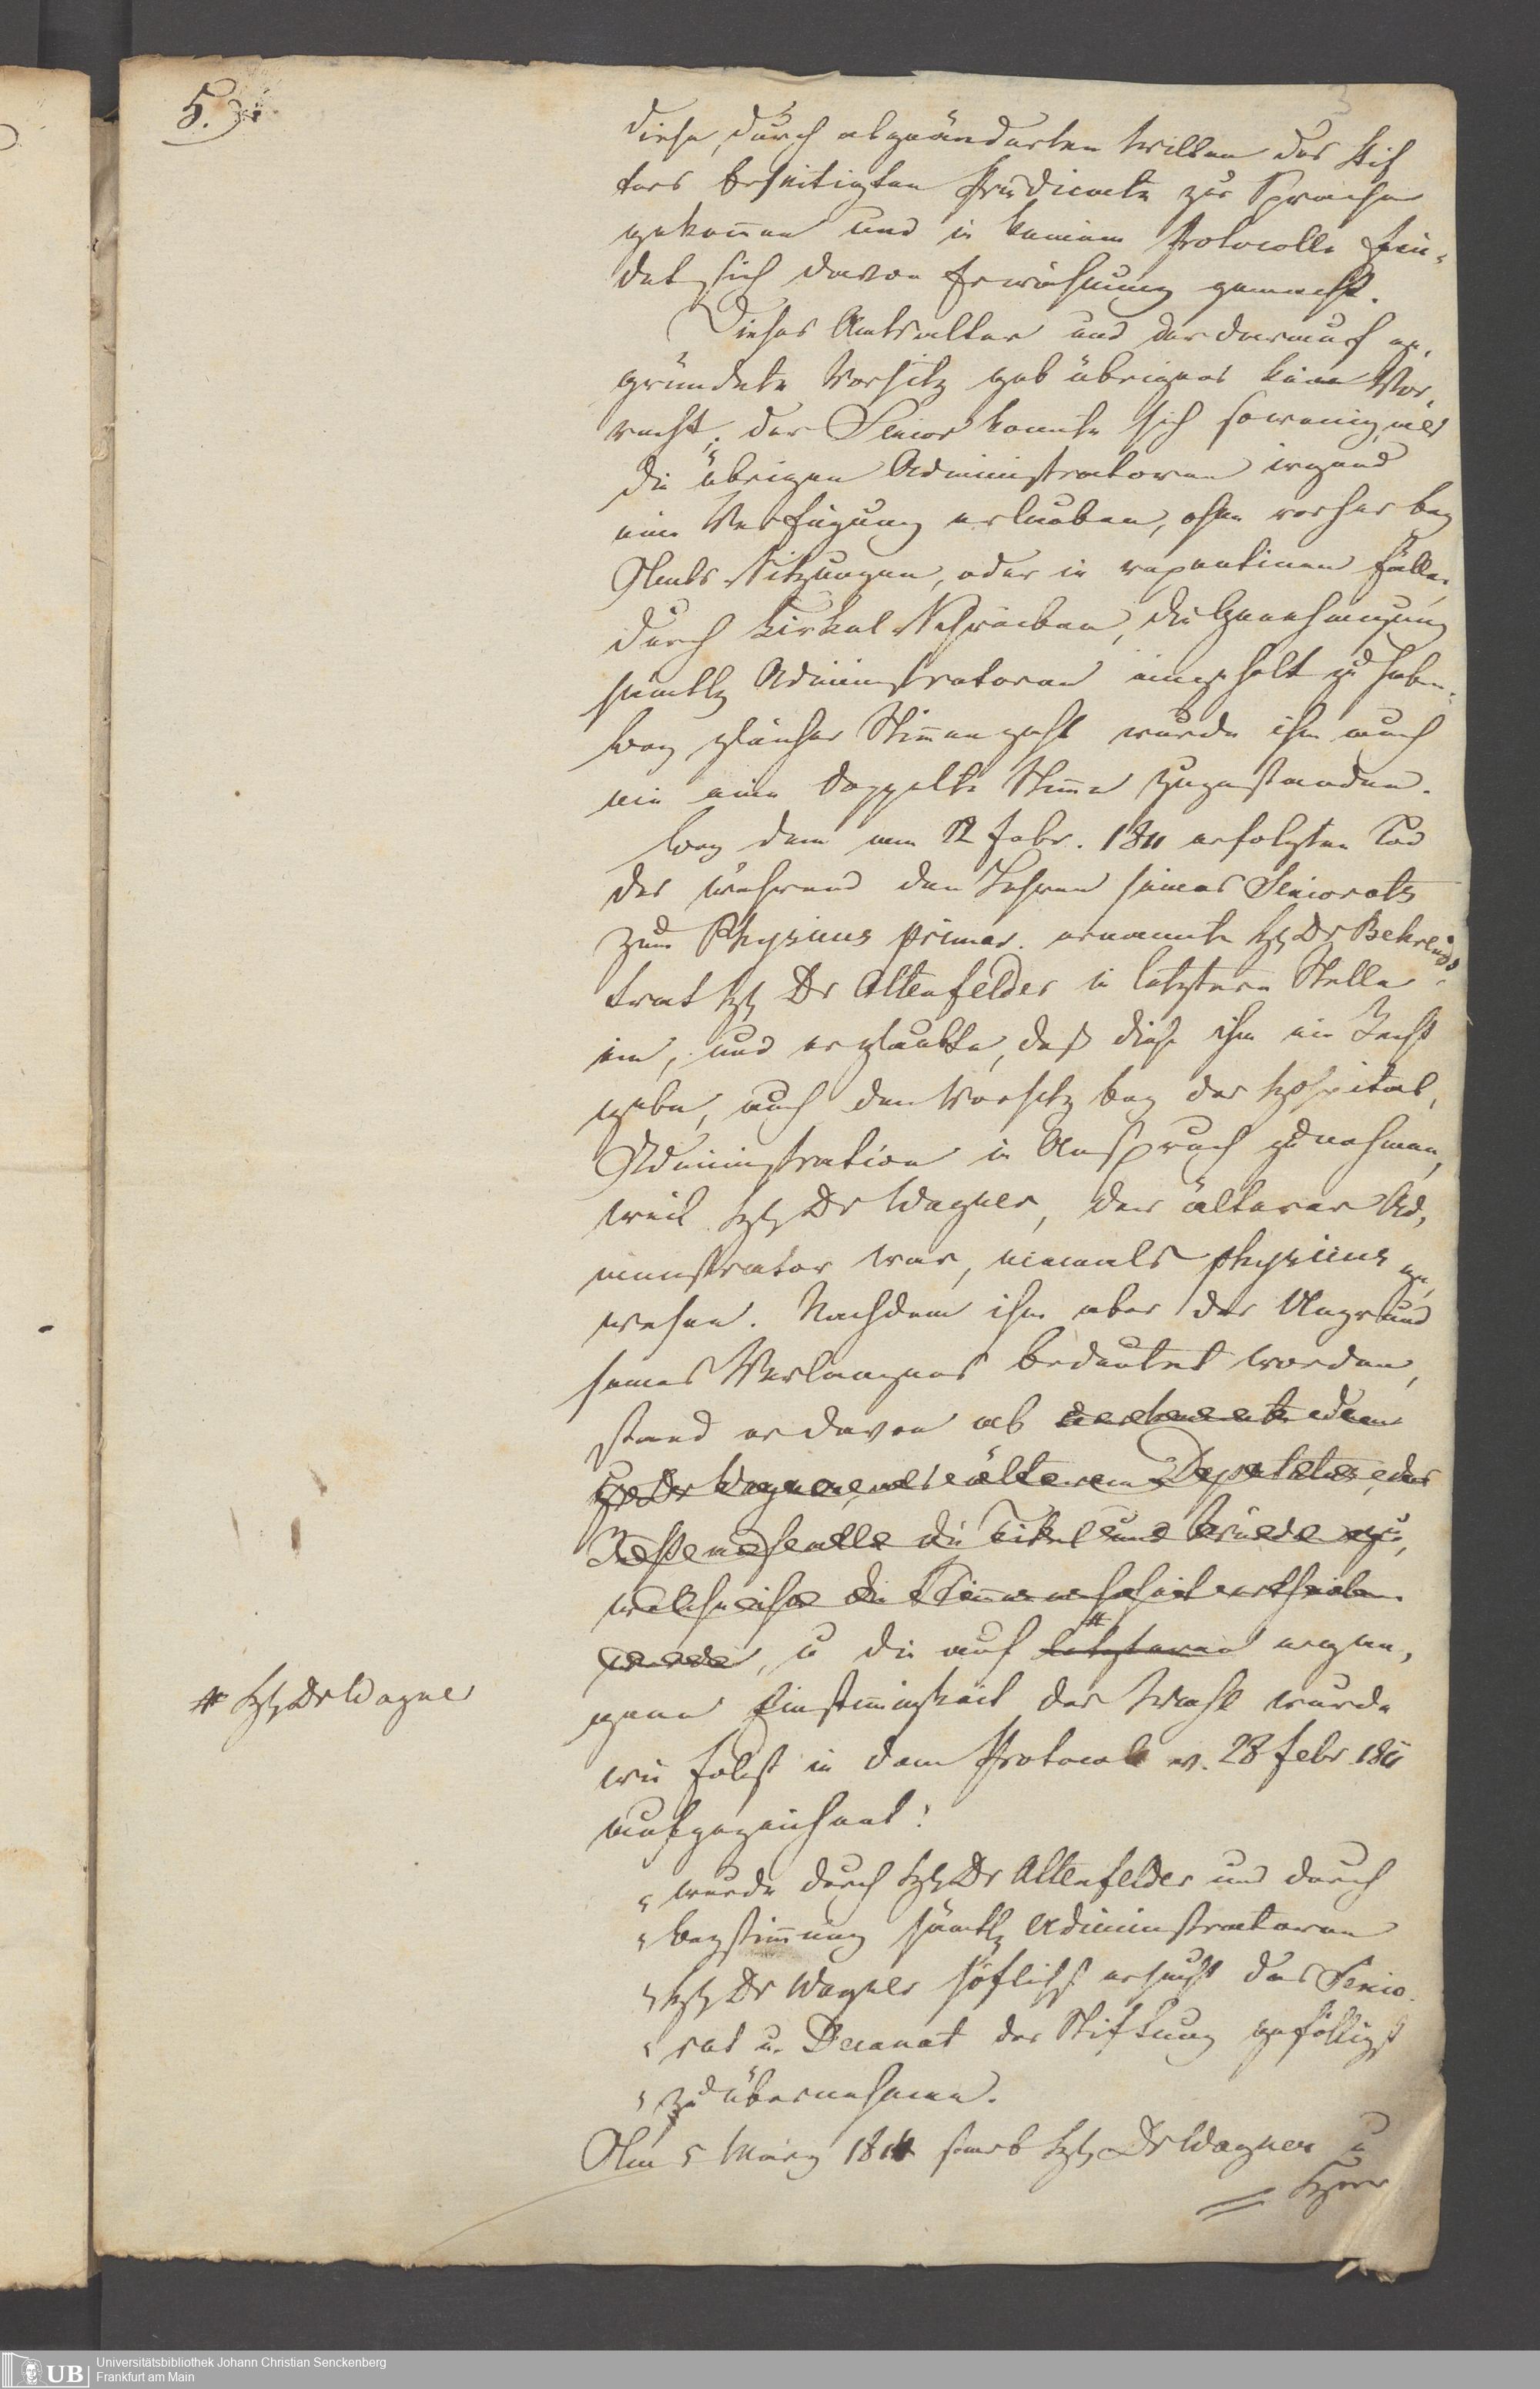 5.)
3
diese, durch abgeänderten Willen des Stif
ters beseitigten Prädicate zur Sprache
gekom̅en und in keinem Protocolle fin-
det sich davon Erwähnung gemacht.
Dieses Amtsalter und der darauf ge-
gründete Vorsitz gab übrigens kein Vor-
recht; der Senior konnte sich sowenig, als
die übrigen Administratoren irgend
eine Verfügung erlauben, ohne vorher bey
Amts Sitzungen, oder in repentinen Fällen
durch Cirkul Schreiben, die Genehmigung
sämtl Administratoren eingeholt zu haben.
bey gleicher Stim̅enzahl wurde ihm auch
nie eine doppelte Stim̅e zugestanden.
bey dem am 12 febr. 1811 erfolgten Tod
des während den Jahren seines Seniorats
zum Physicus primar. ernannte H Dr Behrends
trat H Dr Altenfelder in letztere Stelle
ein, und er glaubte, daß diese ihm ein Recht
gebe, auch den Vorsitz bey der Hospital-
Administration in Anspruch zu nehmen,
weil H Dr Wagner, der älterer Ad-
ministrator war, niemals physicus ge-
wesen. Nachdem ihm aber der Ungrund
seines Verlangens bedeutet worden,
stand er davon ab dem
H Dr Wagner, als älterem Deputatus, das
die Titel und Würde zu,
welche ihm die Stim̅enmehrheit ertheilen
werde, u die auf letzteren ergan-
# H Dr Wagner
gene Einstim̅igkeit der Wahl wurde
wie folgt in dem Protocoll v. 28 febr 1811
aufgezeichnet:
„wurde durch H Dr Altenfelder und durch
„beystim̅ung sämtl Administratoren
„H Dr Wagner höflichst ersucht das Senio-
„rat u. Decanat der Stiftung gefälligst
„zu übernehmen.
Am 5 März 1814 starb H Dr Wagner u
Herr
Universitätsbibliothek Johann Christian Senckenberg
Frankfurt am Main
UB